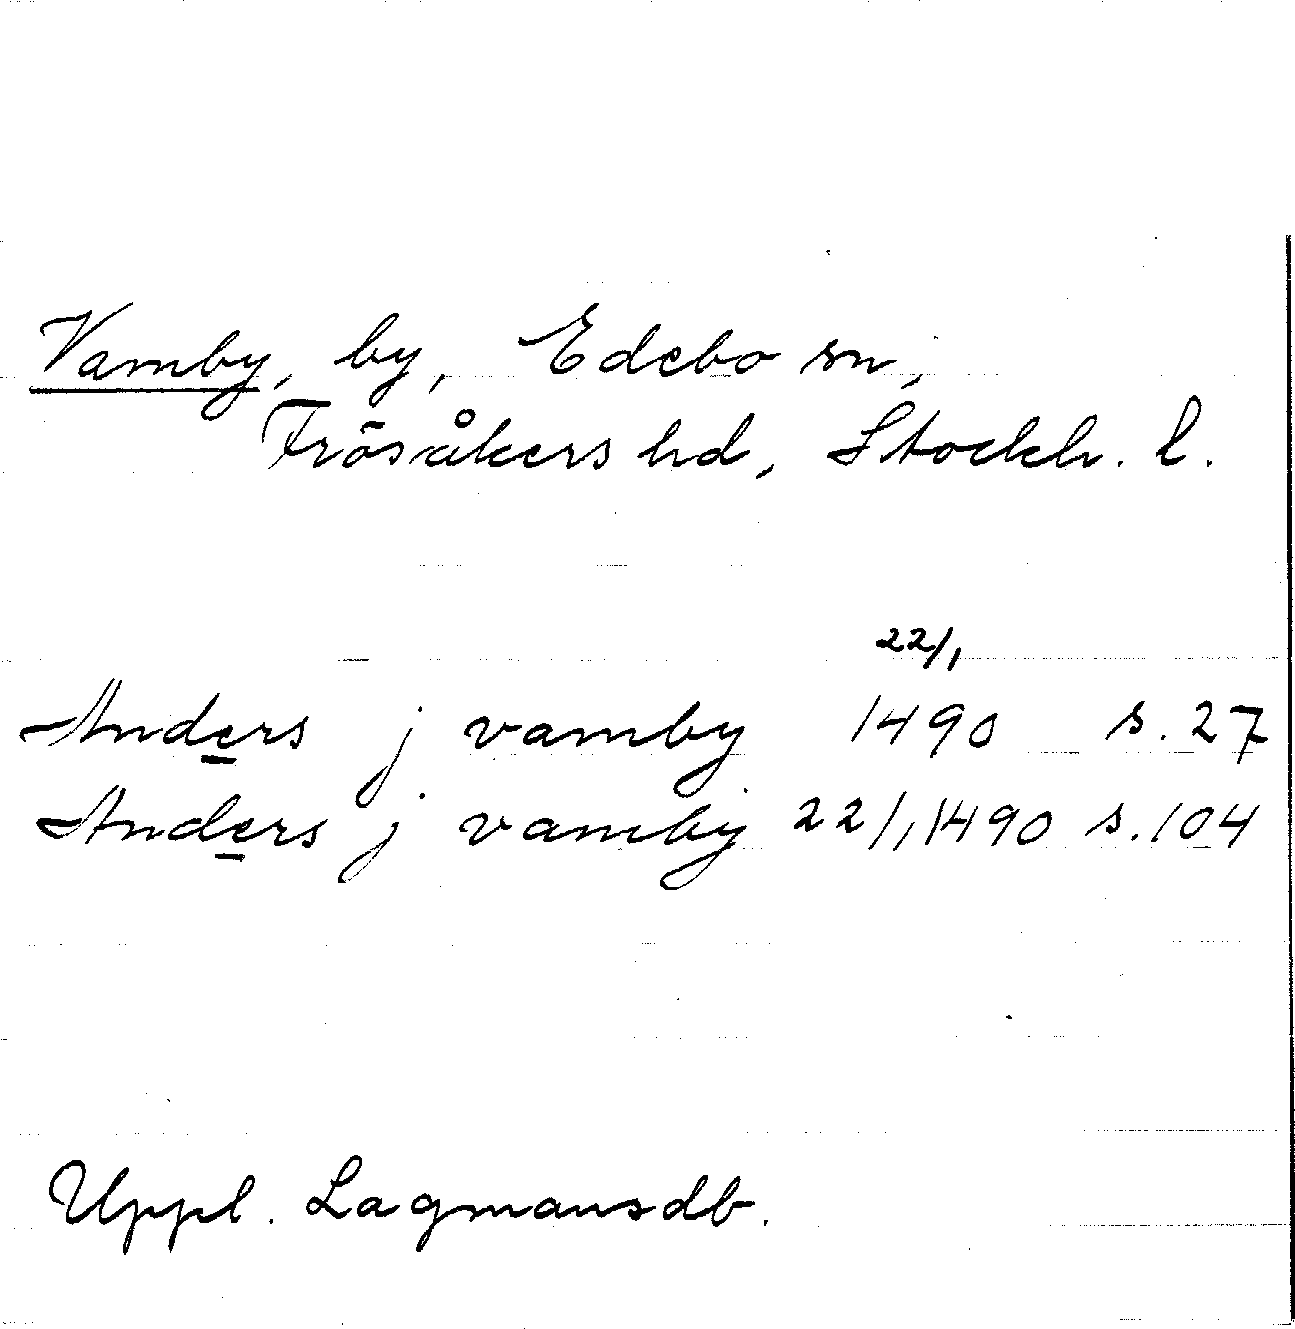 Vamby, by, Edebo sn,
Frösåkers hd, Stockh. l.
22/1
Anders j vamby 1490 s. 27
Anders j vamby 22/1 1490 s. 104
Uppl. Lagmansdb.